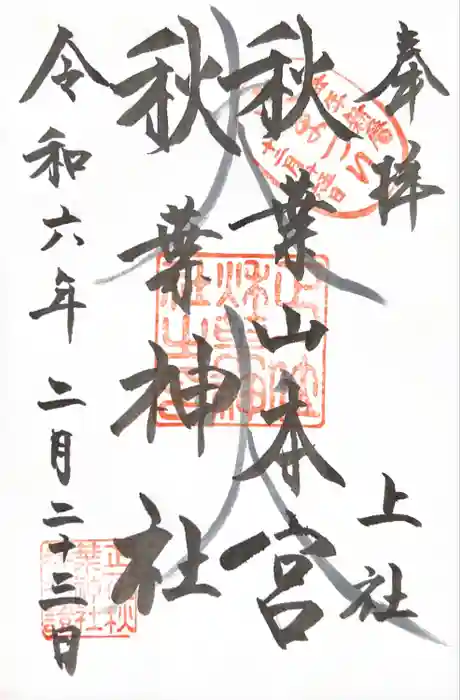 奉拝
上社
秋葉山本宮
秋葉神社
令和六年二月二十三日